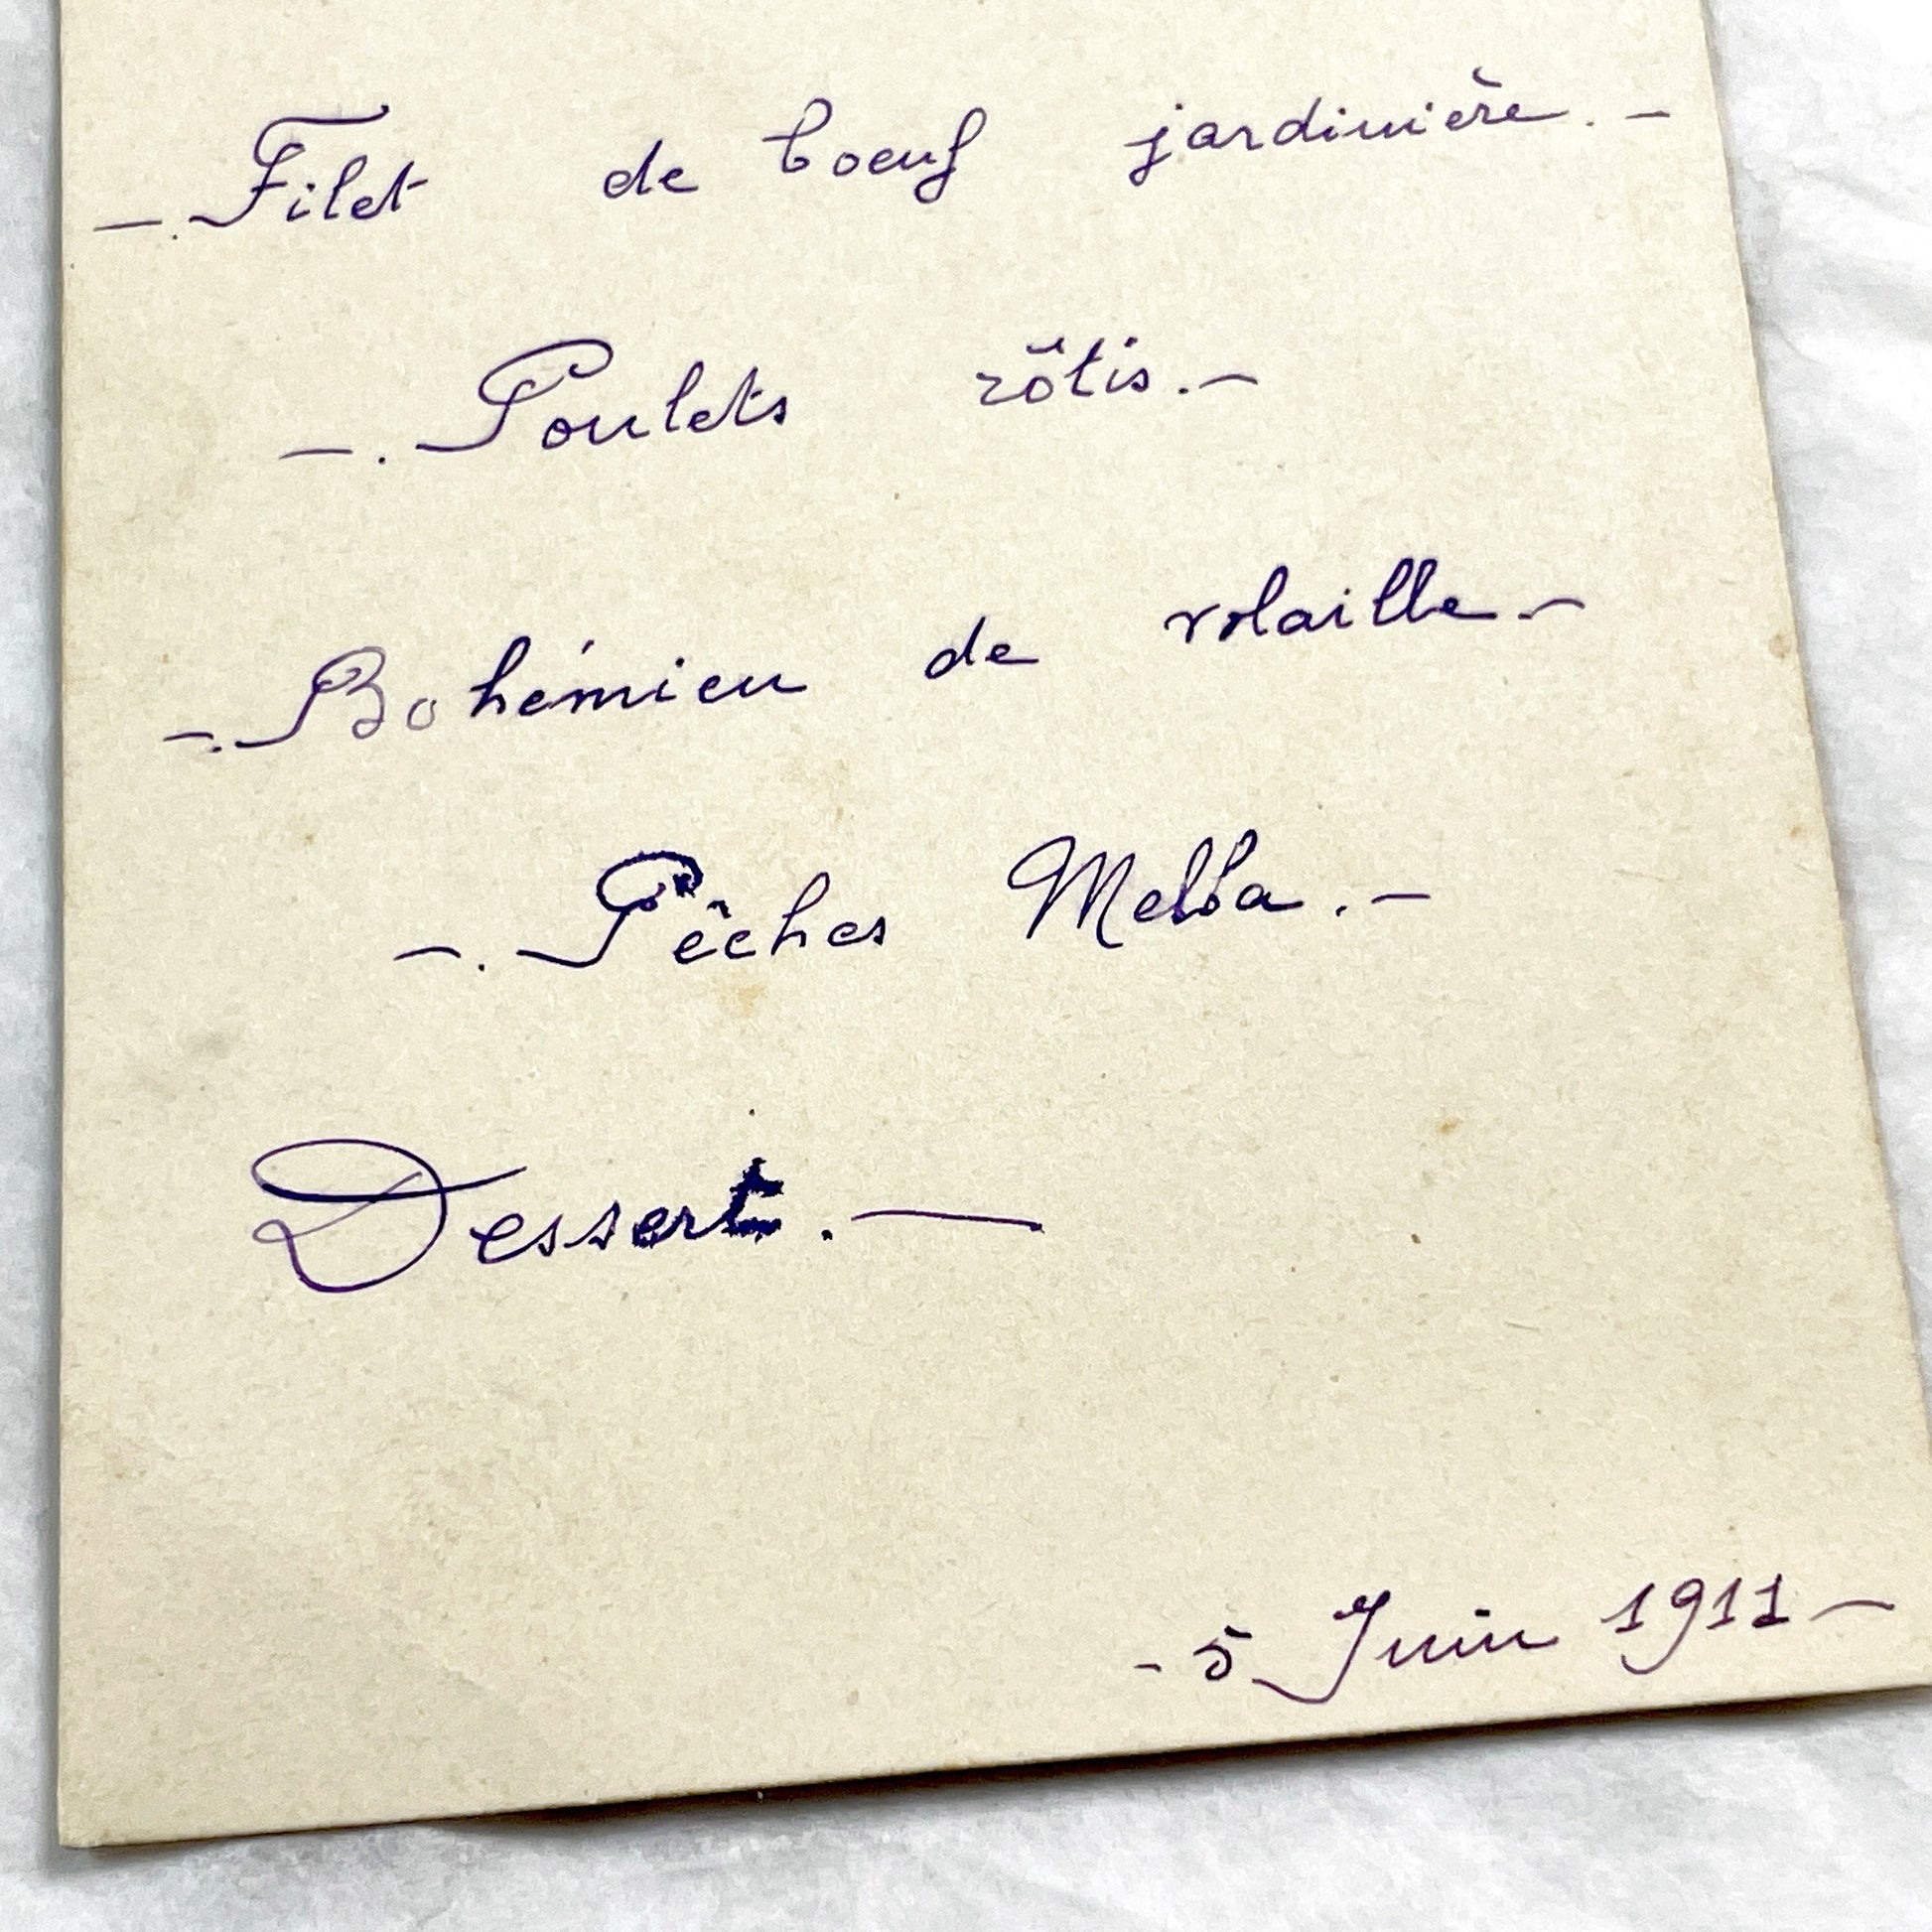 -. Filet de boeuf jardinière. -
-. Poulets rôtis. -
-. Bohémien de volaille -
-. Pêches Melba. -
Dessert. —
- 5 Juin 1911 -